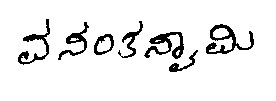 ವನಂತಸ್ವಾಮಿ